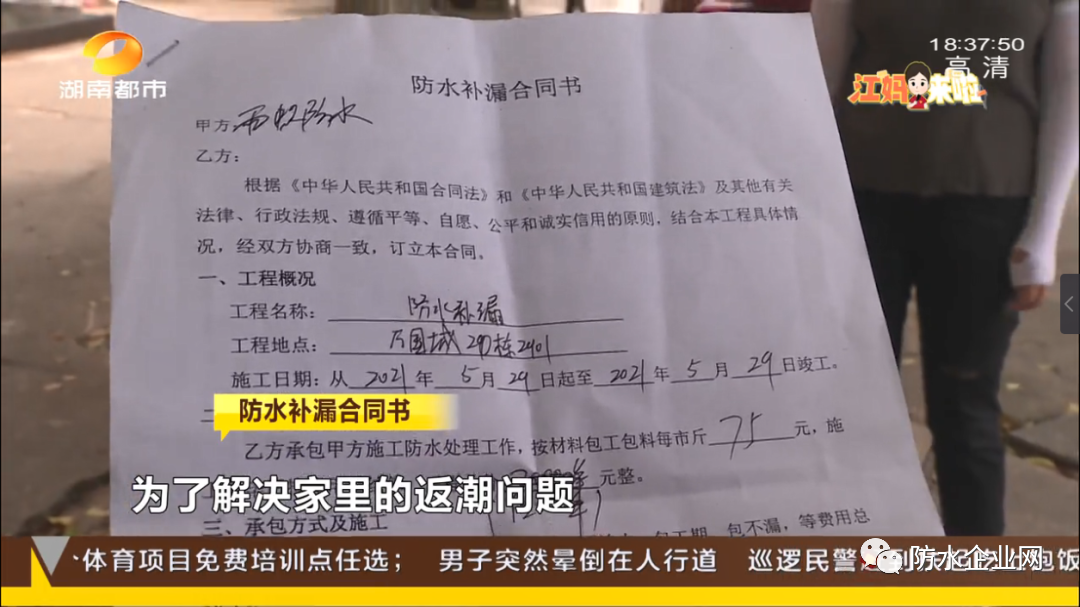 湖南都市
18:37:50
高清
江妈来啦
防水补漏合同书
甲方:雨虹防水
乙方:
根据《中华人民共和国合同法》和《中华人民共和国建筑法》及其他有关
法律、行政法规、遵循平等、自愿、公平和诚实信用的原则,结合本工程具体情
况,经双方协商一致,订立本合同。
一、工程概况
工程名称: 防水补漏
工程地点: 万国城29栋2401
施工日期:从 2021 年 5 月 29 日起至 2021 年 5 月 29 日竣工。
防水补漏合同书
乙方承包甲方施工防水处理工作,按材料包工包料每市斤 75 元,施
元整。
为了解决家里的返潮问题
三、承包方式及施工
包工期、包不漏,等费用总
体育项目免费培训点任选; 男子突然晕倒在人行道 巡逻民警
防水企业网